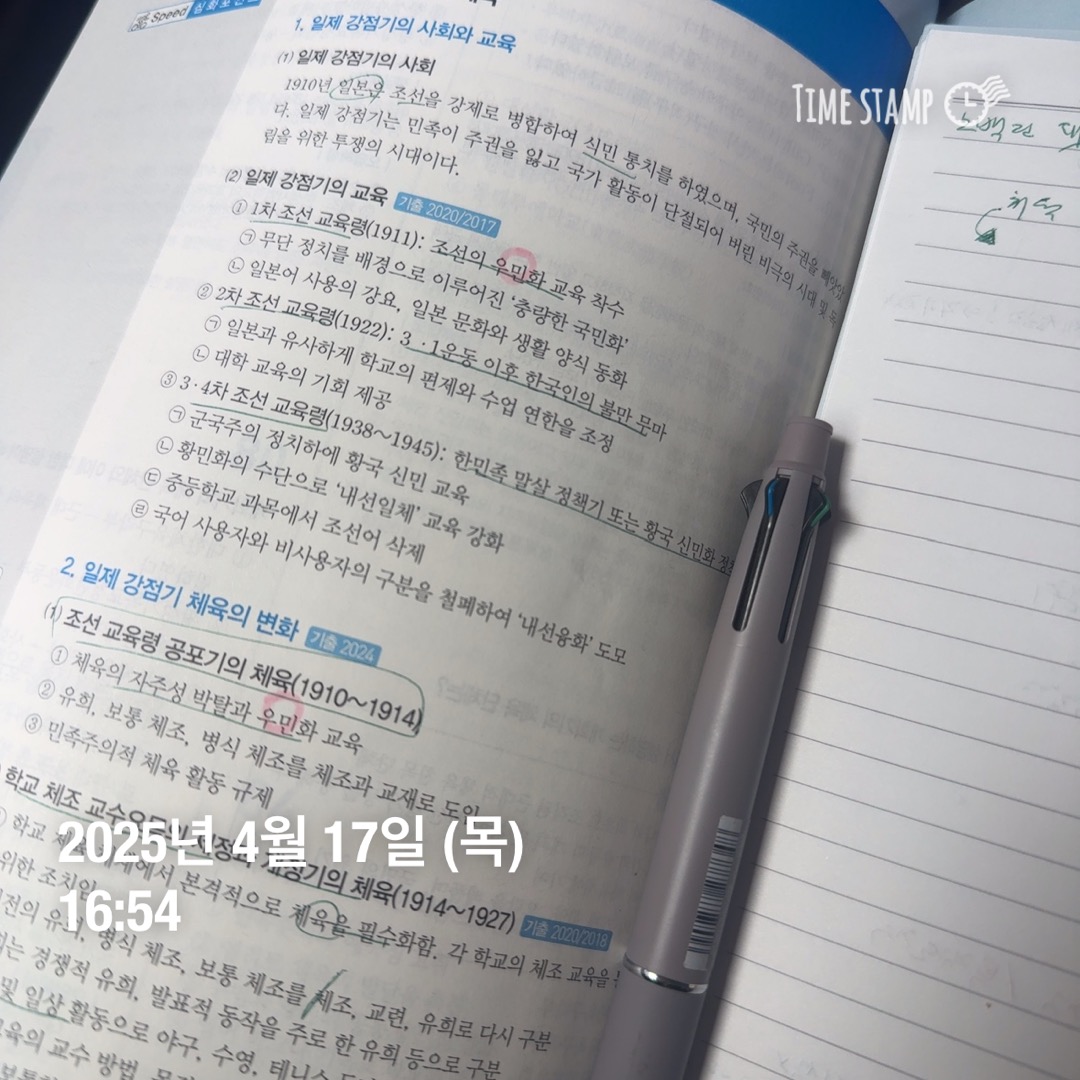 Speed 심화포인트
1. 일제 강점기의 사회와 교육
(1) 일제 강점기의 사회
1910년 일본은 조선을 강제로 병합하여 식민 통치를 하였으며, 국민의 주권을 빼앗았
다. 일제 강점기는 민족이 주권을 잃고 국가 활동이 단절되어 버린 비극의 시대 및 독
립을 위한 투쟁의 시대이다.
(2) 일제 강점기의 교육 기출 2020/2017
① 1차 조선 교육령(1911): 조선의 우민화 교육 착수
㉠ 무단 정치를 배경으로 이루어진 '충량한 국민화'
㉡ 일본어 사용의 강요, 일본 문화와 생활 양식 동화
② 2차 조선 교육령(1922): 3·1운동 이후 한국인의 불만 무마
㉠ 일본과 유사하게 학교의 편제와 수업 연한을 조정
㉡ 대학 교육의 기회 제공
③ 3·4차 조선 교육령(1938~1945): 한민족 말살 정책기 또는 황국 신민화 정책
㉠ 군국주의 정치하에 황국 신민 교육
㉡ 황민화의 수단으로 '내선일체' 교육 강화
㉢ 중등학교 과목에서 조선어 삭제
㉣ 국어 사용자와 비사용자의 구분을 철폐하여 '내선융화' 도모
2. 일제 강점기 체육의 변화 기출 2024
(1) 조선 교육령 공포기의 체육(1910~1914)
① 체육의 자주성 박탈과 우민화 교육
② 유희, 보통 체조, 병식 체조를 체조과 교재로 도입
③ 민족주의적 체육 활동 규제
학교 체조 교수요목의 제정과 개정기의 체육(1914~1927) 기출 2020/2018
학교 체육 에서 본격적으로 체육을 필수화함. 각 학교의 체조 교육을
위한 조치임
전의 유희, 병식 체조, 보통 체조를 체조, 교련, 유희로 다시 구분
는 경쟁적 유희, 발표적 동작을 주로 한 유희 등으로 구분
및 일상 활동으로 야구, 수영, 테니스
교육의 교수 방법, 목
TIME STAMP
2025년 4월 17일 (목)
16:54